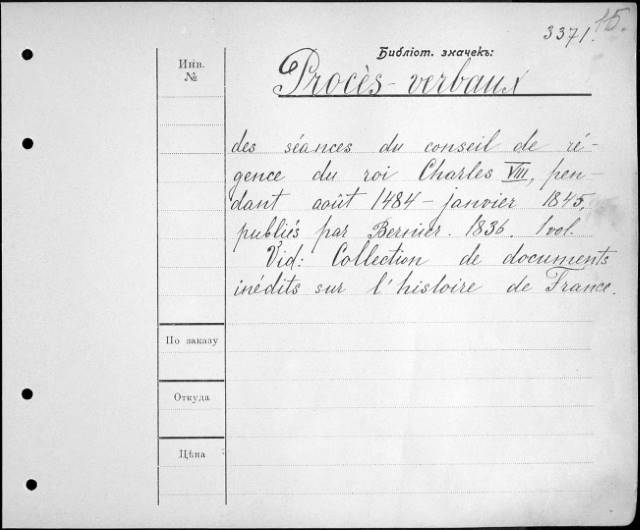 3371. 15.
Библіот. значекъ:
Инв.
№
Procès-verbaux
des séances du conseil de ré-
gence du roi Charles VIII, pen-
dant août 1484 – janvier 1845,
publiés par Bernier. 1836. 1 vol.
Vid: Collection de documents
inédits sur l'histoire de France.
По заказу
Откуда
Цѣна